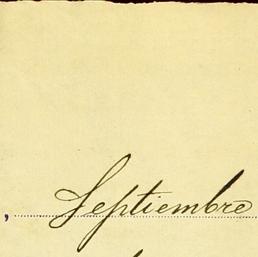 , Septiembre